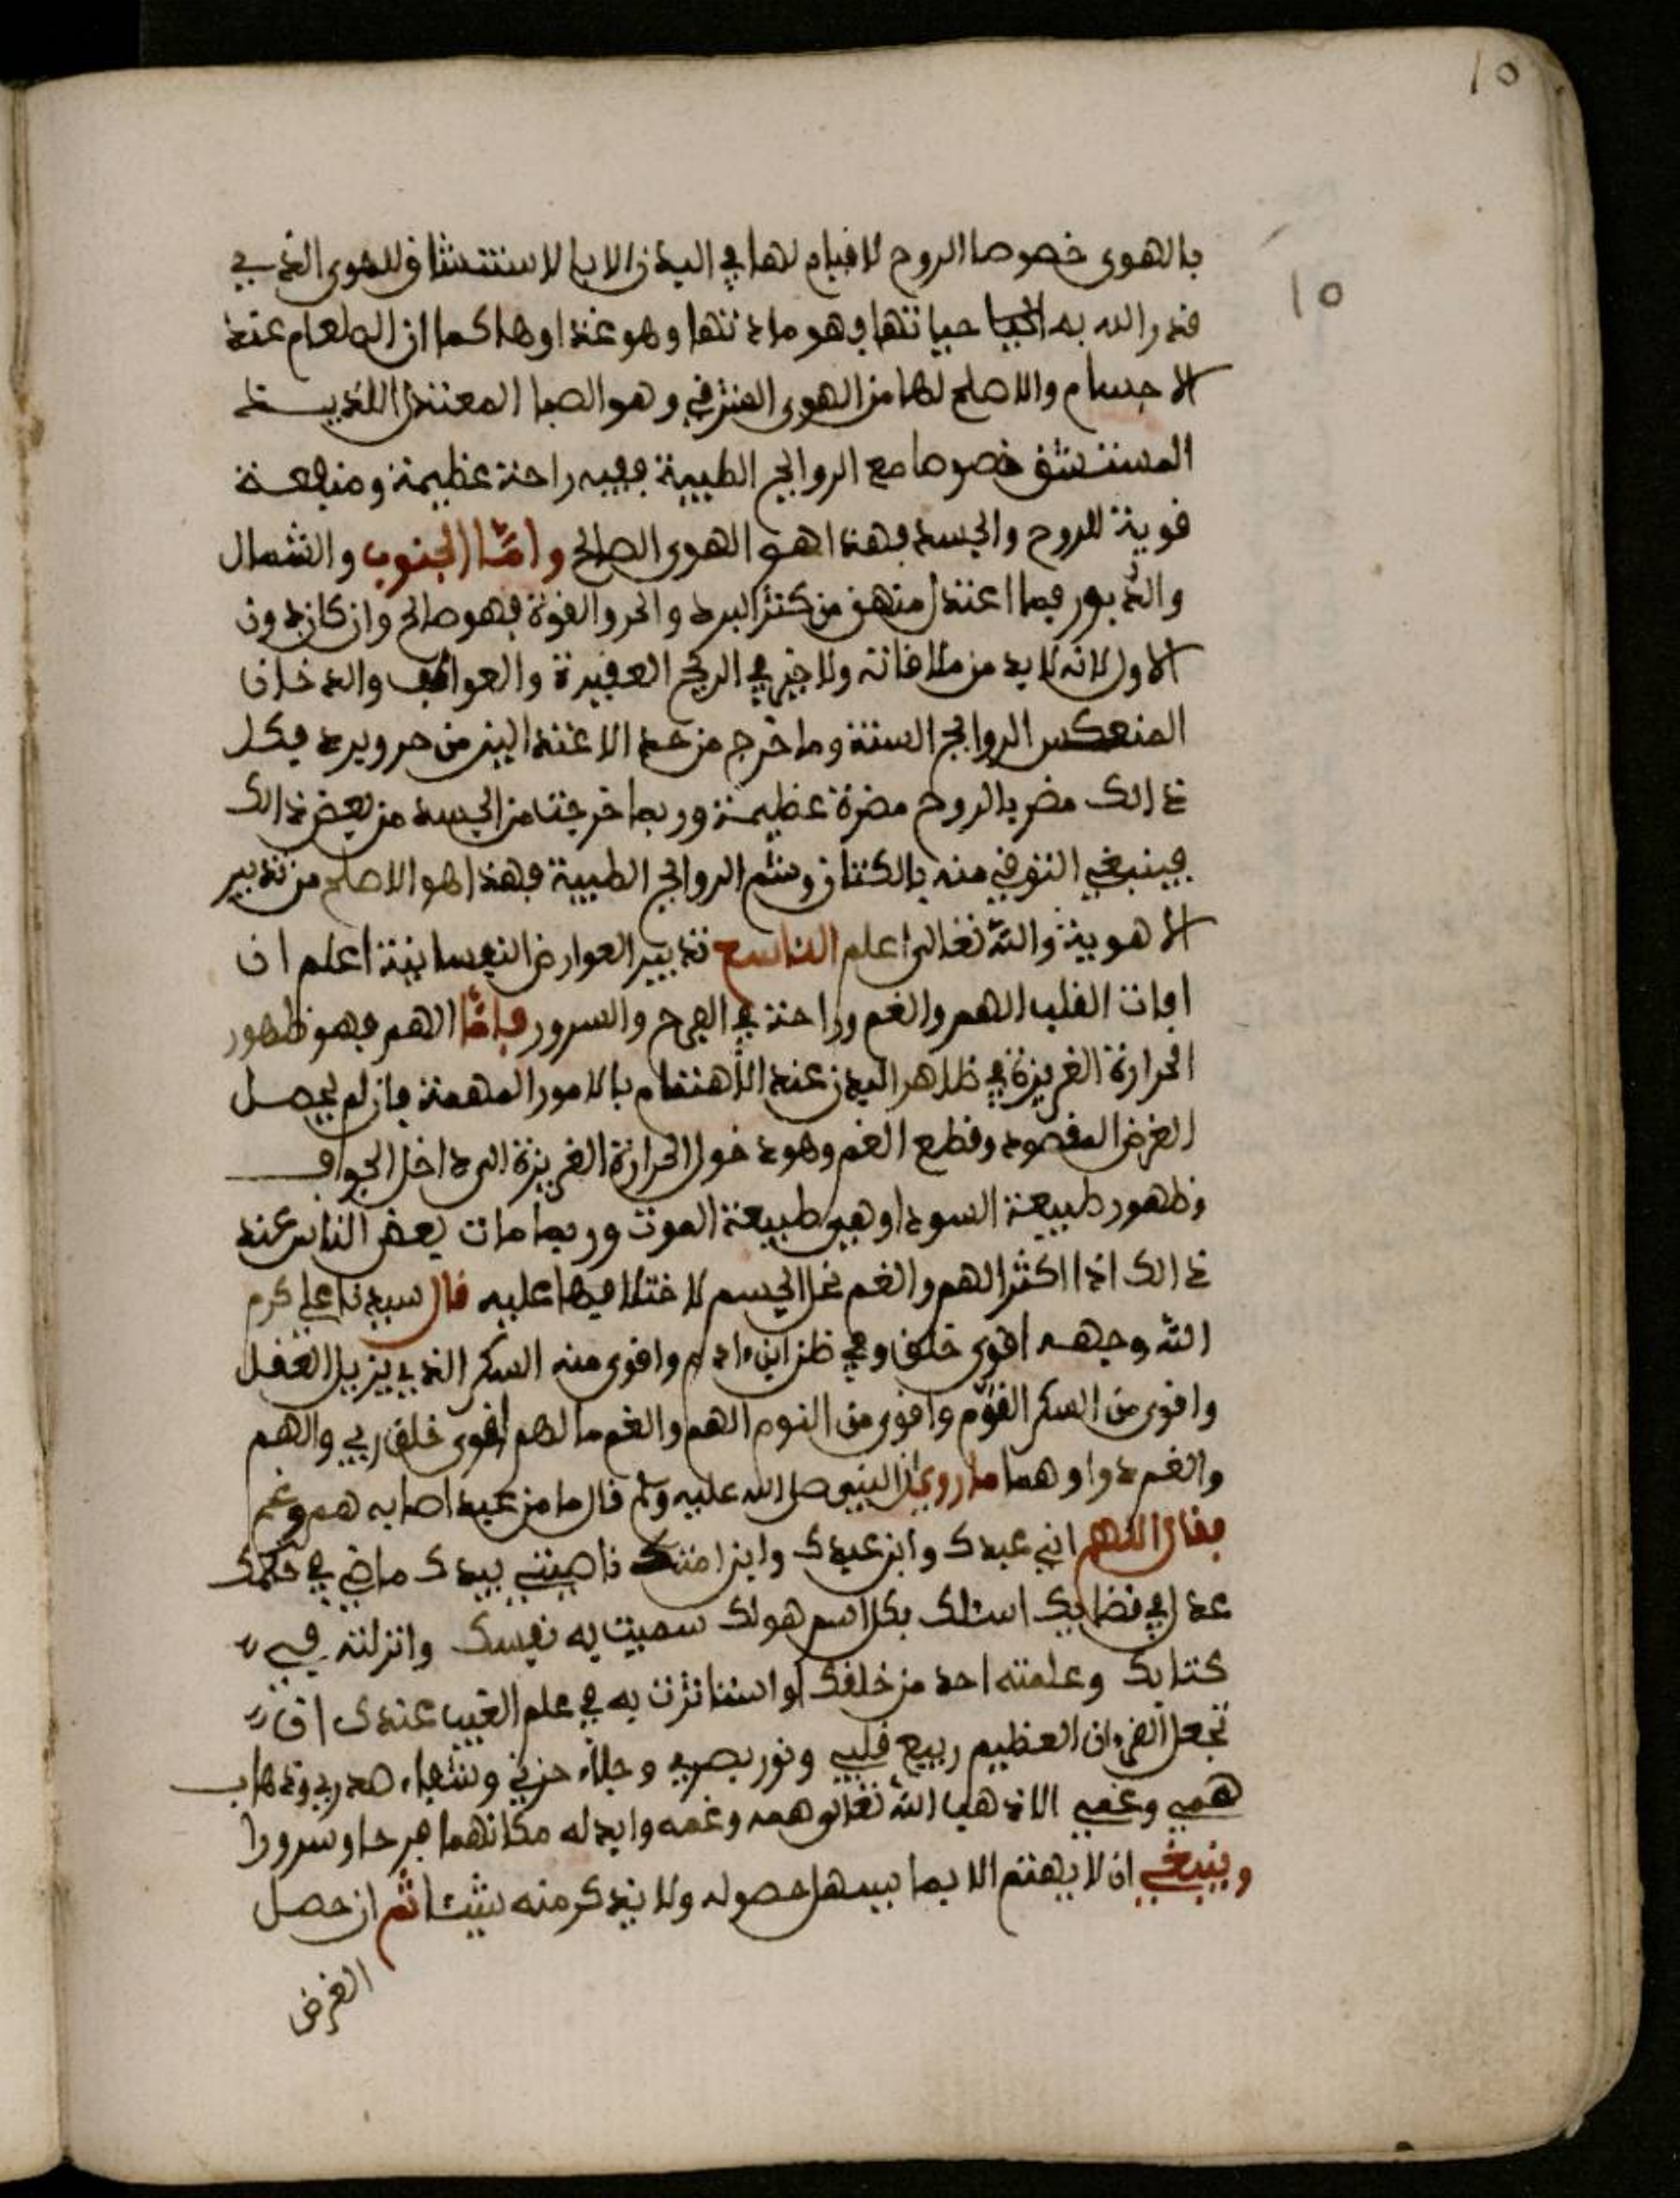 10
10
بالهوى خصوصا الروح لا قيام لها في البدن الا بالاستنشاق للهوى الذي
قدر الله به حياتها وهو مادتها وهو غذاوها كما ان الطعام غذا
الاجسام والاصلح لها من الهوى الشرقي وهو الصبا المعتدل اللذيستلد
المستنشق خصوصا مع الروايح الطيبة ففيه راحة عظيمة ومنفعة
قوية للروح والجسد فهذا هو الهوى الصالح واما الجنوب والشمال
والدبور فما اعتدل منهن من كثر البرد والحر والقوة فهو صالح وان كان دون
الاول لانه لا بد من ملاقاته ولا خير في الريح العقيرة والعواصف والدخان
المنعكس الروايح السنتة وما خرج من حد الاعتدالين من حر وبرد فكل
ذالك مضر بالروح مضرة عظيمة وربما خرجت من الجسد من بعض ذالك
فينبغي التوقي منه بالكتان وشم الروايح الطيبة فهذا هو الاصلح من تدبير
الاهوية والله تعالى اعلم التاسع تدبير العوارض النفسانية اعلم ان
افات القلب الهم والغم وراحته في الفرح والسرور فاما الهم فهو ظهور
الحرارة الغريزة في ظاهر البدن عند الاهتمام بالامور المهمة فان لم يحصل
الغرض المقصود وقطع الغم وهو دخول الحرارة الغريزة الى داخل الجواف
وظهور طبيعة السودا وهي طبيعة الموت وربما مات بعض الناس عند
ذالك اذا اكثر الهم والغم نحل الجسم لاختلافهما عليه قال سيدنا علي كرم
الله وجهه اقوى خلق ربي ظن ابن ءادم واقوى منه السكر الذي يزيل العقل
واقوى من السكر النوم واقوى من النوم الهم والغم ما لهم اقوى خلق ربي والهم
والغم دواوهما ما روي ان النبي صلى الله عليه وسلم قال ما من عبد اصابه هم وغم
فقال اللهم اني عبدك وابن عبدك وابن امتك ناصيتي بيدك ماضي في حكمك
عدل في قضايك اسئلك بكل اسم هو لك سميت به نفسك وانزلته في
كتابك وعلمته احد من خلقك او استاثرت به في علم الغيب عندك ان
تجعل القرءان العظيم ربيع قلبي ونور بصري وجلاء حزني وشفاء صدري وذهاب
همي وغمي الا اذهب الله تعالى همه وغمه وابدله مكانهما فرحا وسرورا
وينبغي ان لا يهتم الا بما يسهل حصوله ولا يذكر منه شيئا ثم ان حصل
الغرض